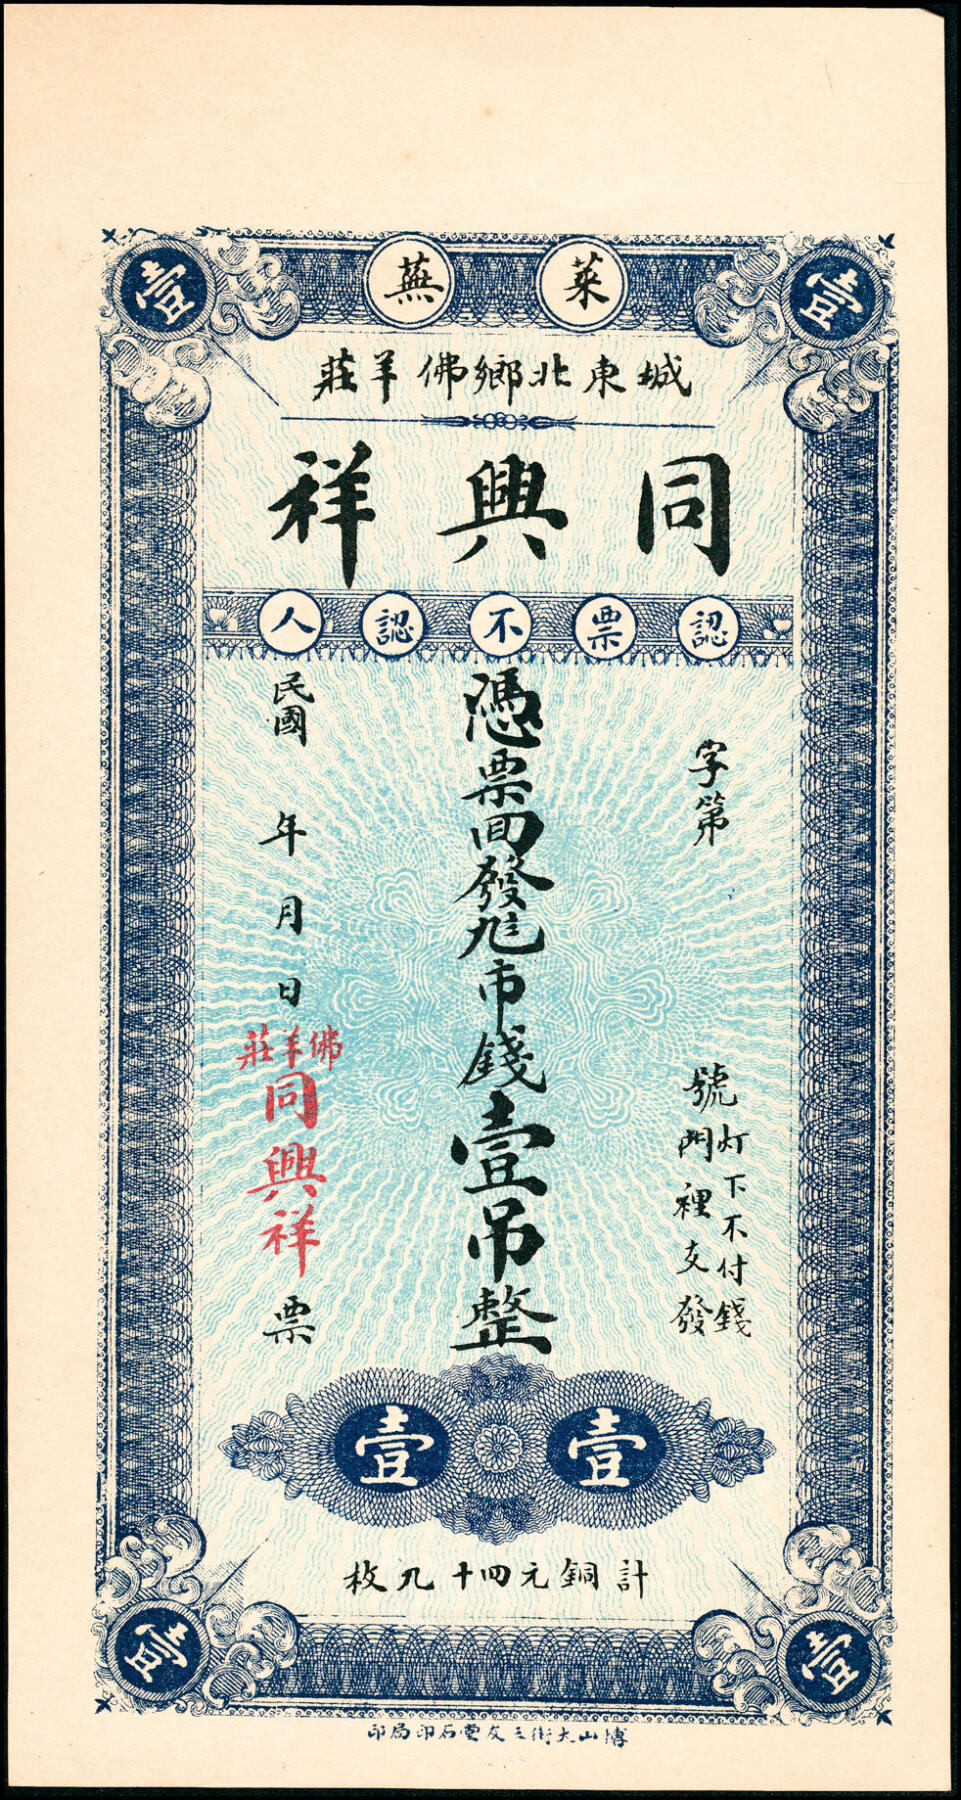 壹 壹
萊蕪
城東北鄉佛羊莊
同興祥
認票不認人
字第
號
灯下不付錢
門裡支發
憑票回發九市錢壹吊整
民國 年 月 日
佛羊莊
同興祥
票
壹 壹
計銅元四十九枚
壹 壹
博山大街三友堂石印局印